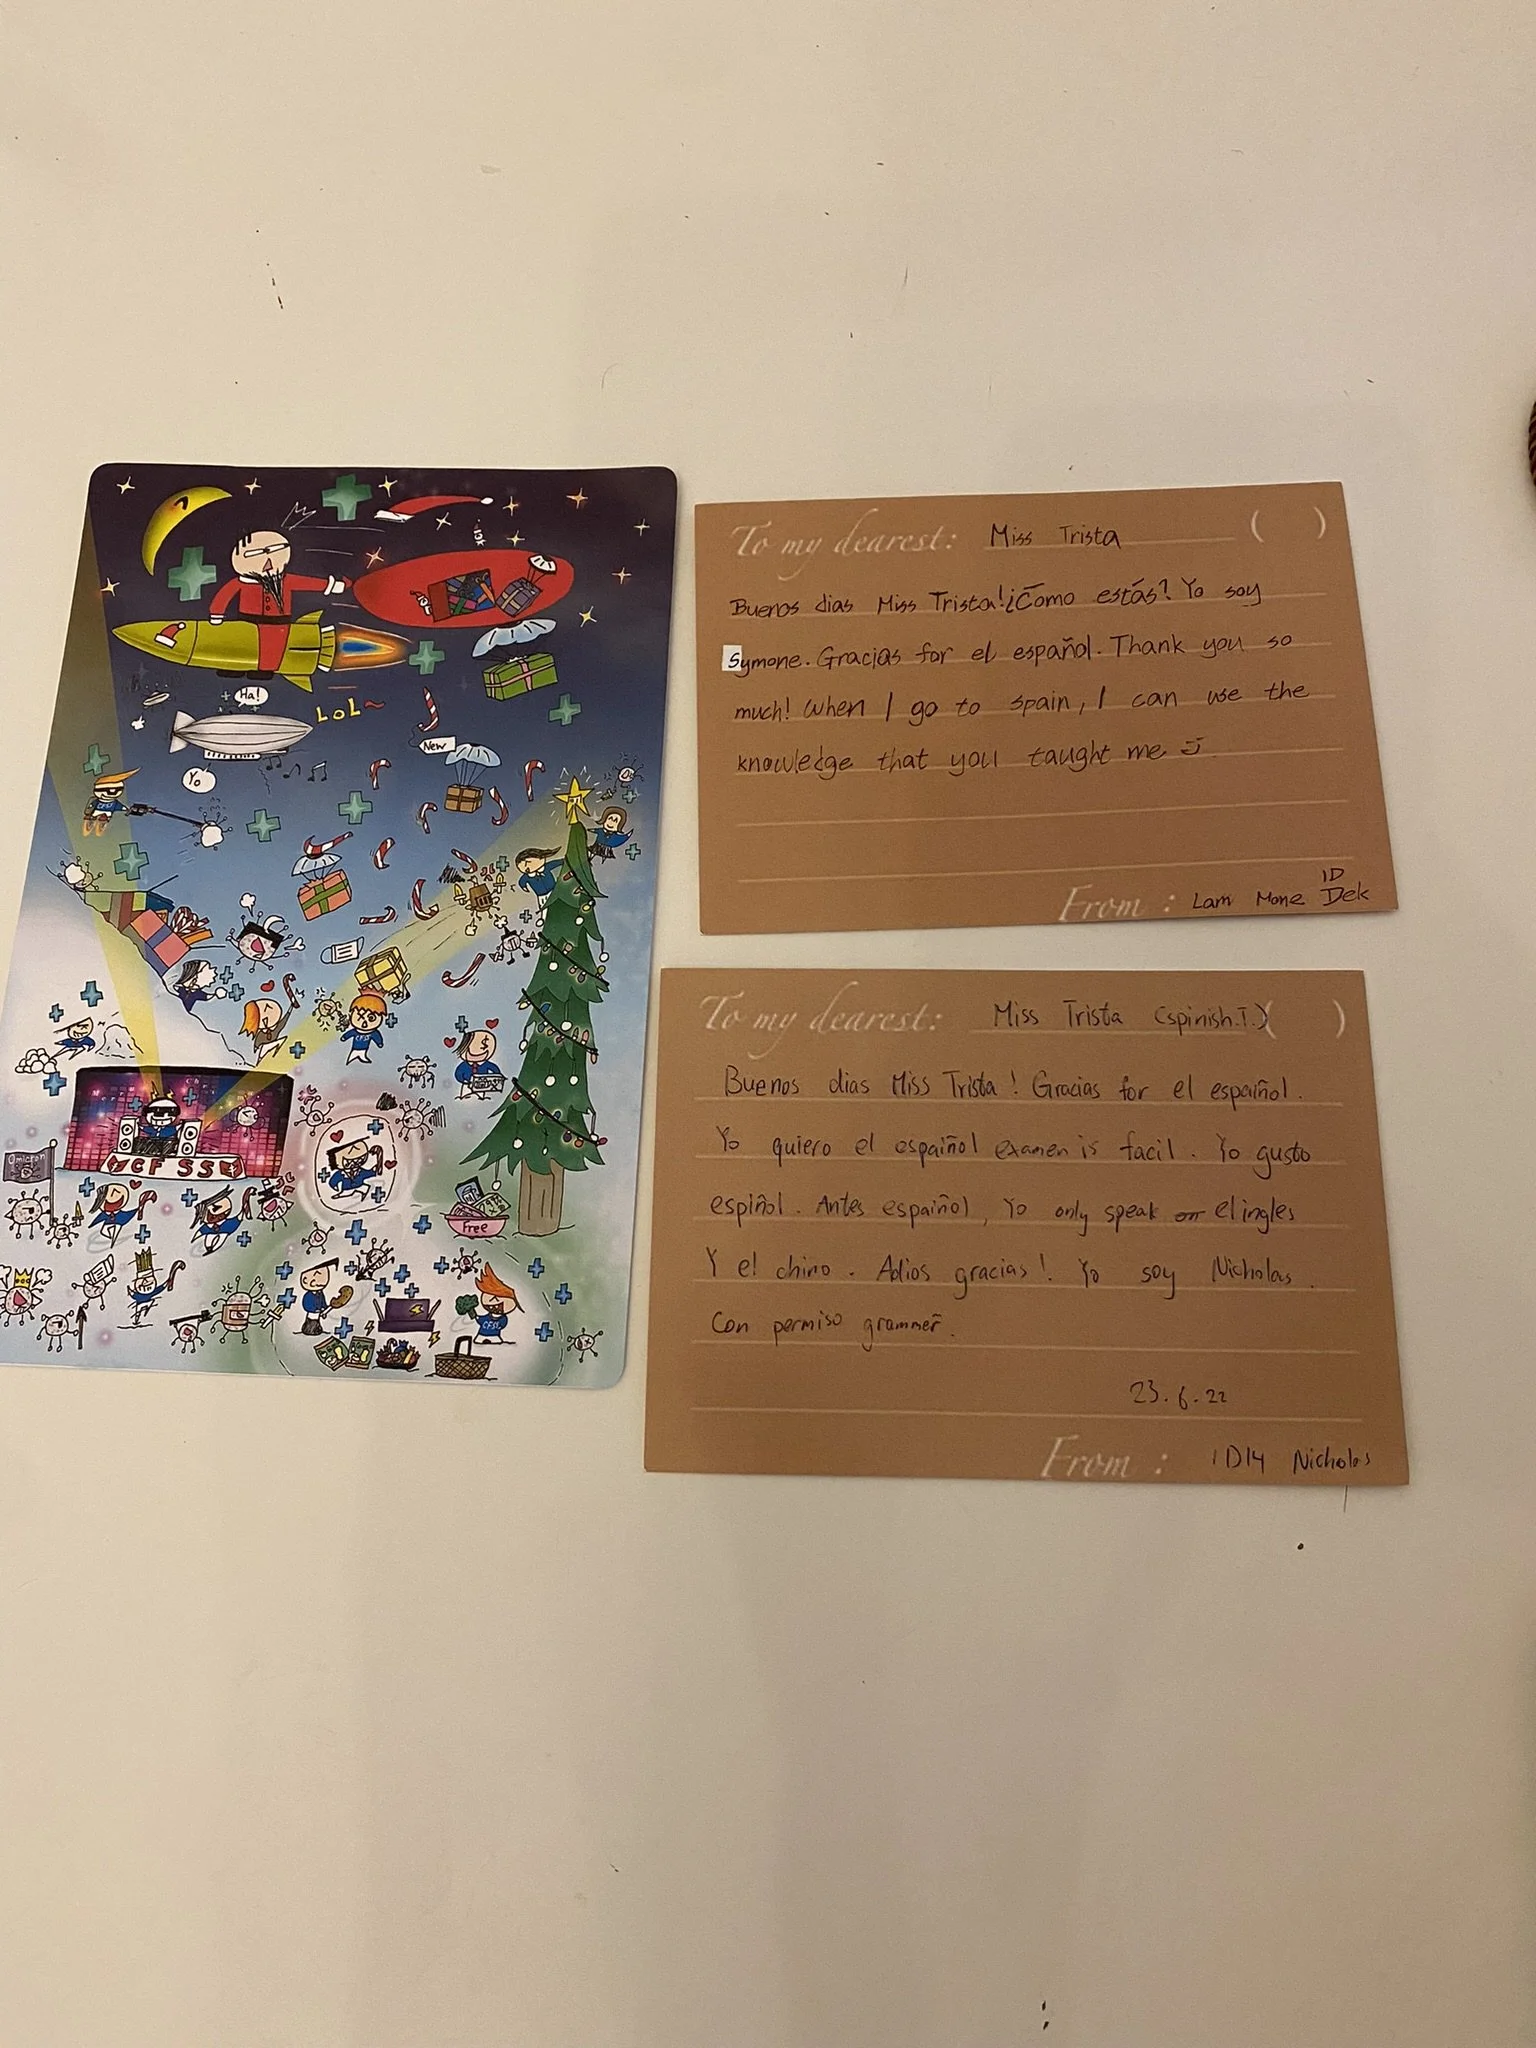 Ha!
LOL~
New
Yo
CFSS
Omicron
Free
CFSS
To my dearest: Miss Trista ( )
Buenos dias Miss Trista! ¿Cómo estás? Yo soy
Symone. Gracias for el español. Thank you so
much! When I go to spain, I can use the
knowledge that you taught me
1D
From : Lam Mone Dek
To my dearest: Miss Trista (spinish.T.) ( )
Buenos dias Miss Trista! Gracias for el espaiñol.
Yo quiero el espaiñol examen is facil. Yo gusto
espiñol. Antes espaiñol, Yo only speak el ingles
Y el chino. Adios gracias! Yo soy Nicholas.
Con permiso grammer̃.
23.6.22
From : 1D14 Nicholas